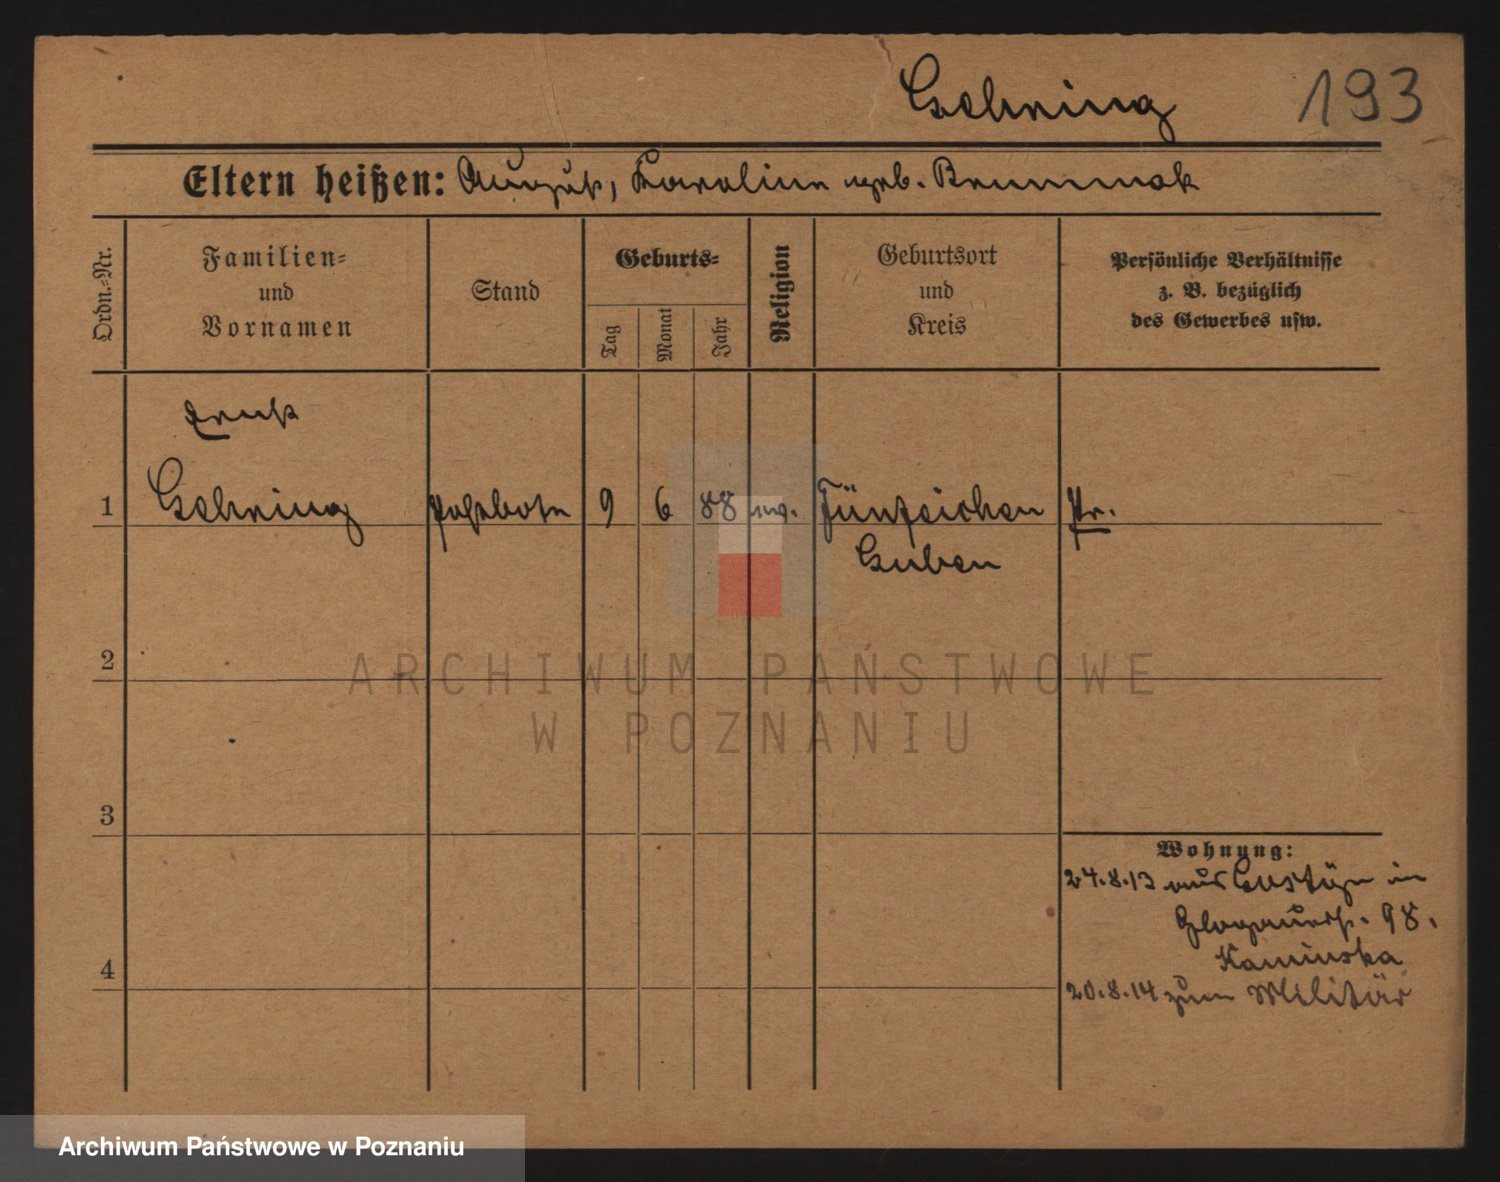 Gehring 193
Eltern heißen: August, Karoline geb. Brummak
Ordn.-Nr.
Familien-
und
Vornamen
Stand
Geburts-
Tag
Monat
Jahr
Religion
Geburtsort
und
Kreis
Persönliche Verhältnisse
z. B. bezüglich
des Gewerbes usw.
Ernst
1 Gehring Postbote 9 6 88 evg. Fünfeichen Pr.
Guben
2
3
4
Wohnung:
24.8.13 aus in
Glogauerstr. 98.
Kaminska
20.8.14 zum Militär
ARCHIWUM PAŃSTWOWE
W POZNANIU
Archiwum Państwowe w Poznaniu